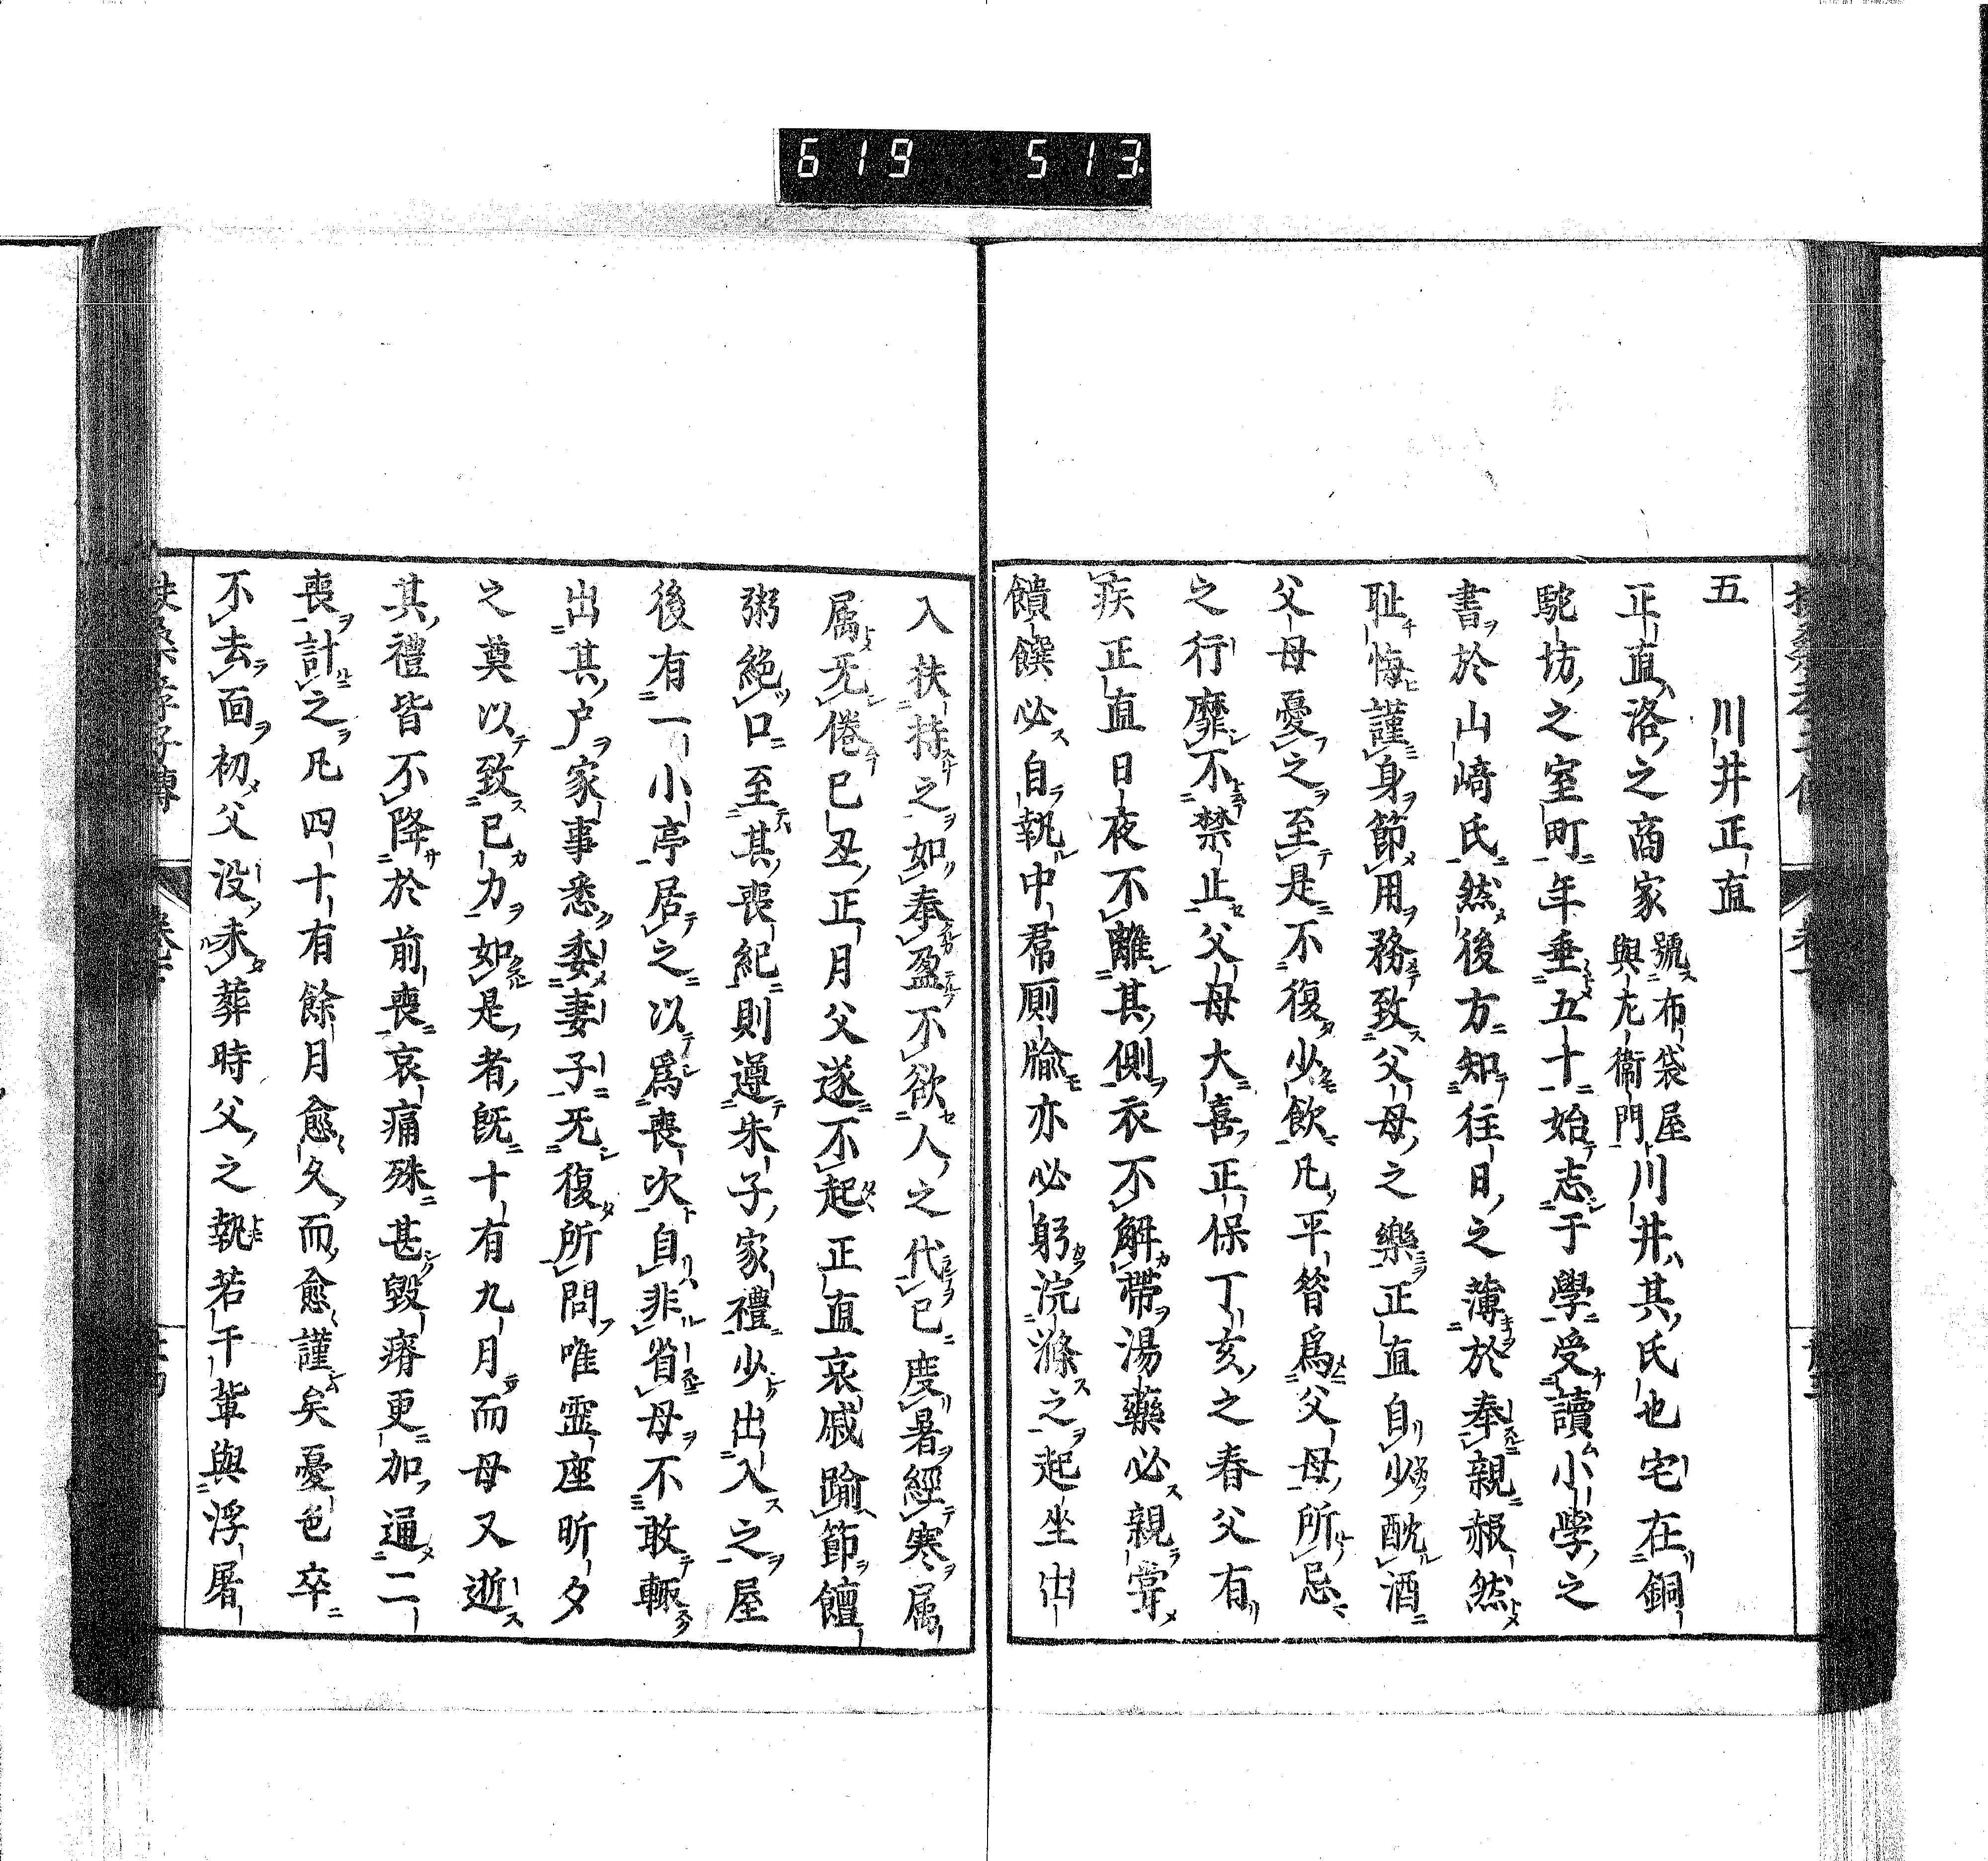 619 513
五 川井正直
正直洛之商家
號布袋屋
與左衞門
川井其氏也宅在銅
駝坊之室町年垂五十始志于學受讀小學之
書於山﨑氏然後方知往日之薄於奉親赧然
耻悔謹身節用務致父母之樂正直自少酖酒
父母憂之至是不復少飲凡平簪爲父母所忌
之行靡不禁止父母大喜正保丁亥之春父有
疾正直日夜不離其側衣不解帶湯藥必親甞
饋饌必自執中帬厠牏亦必躬浣滌之起坐出
入扶持之如奉盈不欲人之代已度暑經寒属
属无倦已丑正月父遂不起正直哀戚踰節饘
粥絶口至其喪紀則遵朱子家禮少出入之屋
後有一小亭居之以爲喪次自非省母不敢輙
出其户家事悉委妻子无復所問唯霊座昕夕
之奠以致已力如是者既十有九月而母又逝
其禮皆不降於前喪哀痛殊甚毀瘠更加通二
喪計之凡四十有餘月愈久而愈謹矣憂色卒
不去面初父没未葬時父之執若干輩與浮屠
扶桑孝子傳